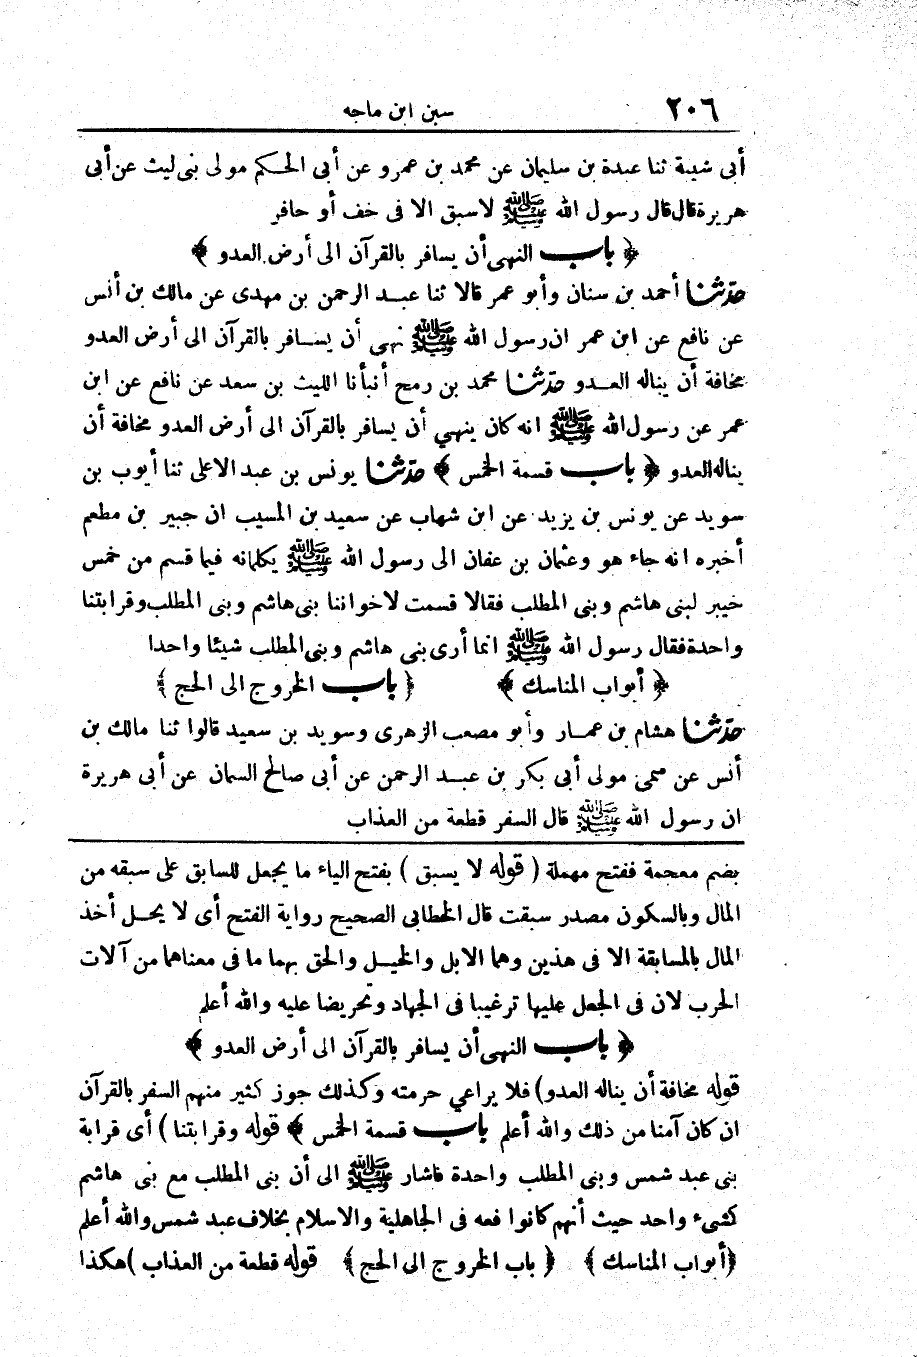 ٢٠٦ سنن ابن ماجه
أبى شيبة ثنا عبدة بن سليمان عن محمد بن عمرو عن أبى الحكم مولى بنى ليث عن أبى
هريرة قال قال رسول الله ﷺ لاسبق الا فى خف أو حافر
﴿ باب النهى أن يسافر بالقرآن الى أرض العدو ﴾
حدّثنا أحمد بن سنان وأبو عمر قالا ثنا عبد الرحمن بن مهدى عن مالك بن أنس
عن نافع عن ابن عمر ان رسول الله ﷺ نهى أن يسافر بالقرآن الى أرض العدو
مخافة أن يناله العدو حدّثنا محمد بن رمح أنبأنا الليث بن سعد عن نافع عن ابن
عمر عن رسول الله ﷺ انه كان ينهي أن يسافر بالقرآن الى أرض العدو مخافة أن
يناله العدو ﴿ باب قسمة الخمس ﴾ حدّثنا يونس بن عبد الاعلى ثنا أيوب بن
سويد عن يونس بن يزيد عن ابن شهاب عن سعيد بن المسيب ان جبير بن مطعم
أخبره انه جاء هو وعثمان بن عفان الى رسول الله ﷺ يكلمانه فيما قسم من خمس
خيبر لبنى هاشم وبنى المطلب فقالا قسمت لاخواننا بنى هاشم وبنى المطلب وقرابتنا
واحدة فقال رسول الله ﷺ انما أرى بنى هاشم وبنى المطلب شيئا واحدا
﴿ أبواب المناسك ﴾ ﴿ باب الخروج الى الحج ﴾
حدّثنا هشام بن عمار وأبو مصعب الزهرى وسويد بن سعيد قالوا ثنا مالك بن
أنس عن سمى مولى أبى بكر بن عبد الرحمن عن أبى صالح السمان عن أبى هريرة
ان رسول الله ﷺ قال السفر قطعة من العذاب
بضم معجمة ففتح مهملة ( قوله لا يسبق ) بفتح الباء ما يجعل للسابق على سبقه من
المال وبالسكون مصدر سبقت قال الخطابى الصحيح رواية الفتح أى لا يحل أخذ
المال بالمسابقة الا فى هذين وهما الابل والخيل والحق بهما ما فى معناهما من آلات
الحرب لان فى الجعل عليها ترغيبا فى الجهاد وتحريضا عليه والله أعلم
﴿ باب النهى أن يسافر بالقرآن الى أرض العدو ﴾
قوله مخافة أن يناله العدو) فلا يراعي حرمته وكذلك جوز كثير منهم السفر بالقرآن
ان كان آمنا من ذلك والله أعلم باب قسمة الخمس ﴾ قوله وقرابتنا ) أى قرابة
بنى عبد شمس وبنى المطلب واحدة فاشار ﷺ الى أن بنى المطلب مع بنى هاشم
كشىء واحد حيث أنهم كانوا فعه فى الجاهلية والاسلام بخلاف عبد شمس والله أعلم
﴿أبواب المناسك ﴾ ﴿ باب الخروج الى الحج ﴾ قوله قطعة من العذاب )هكذا